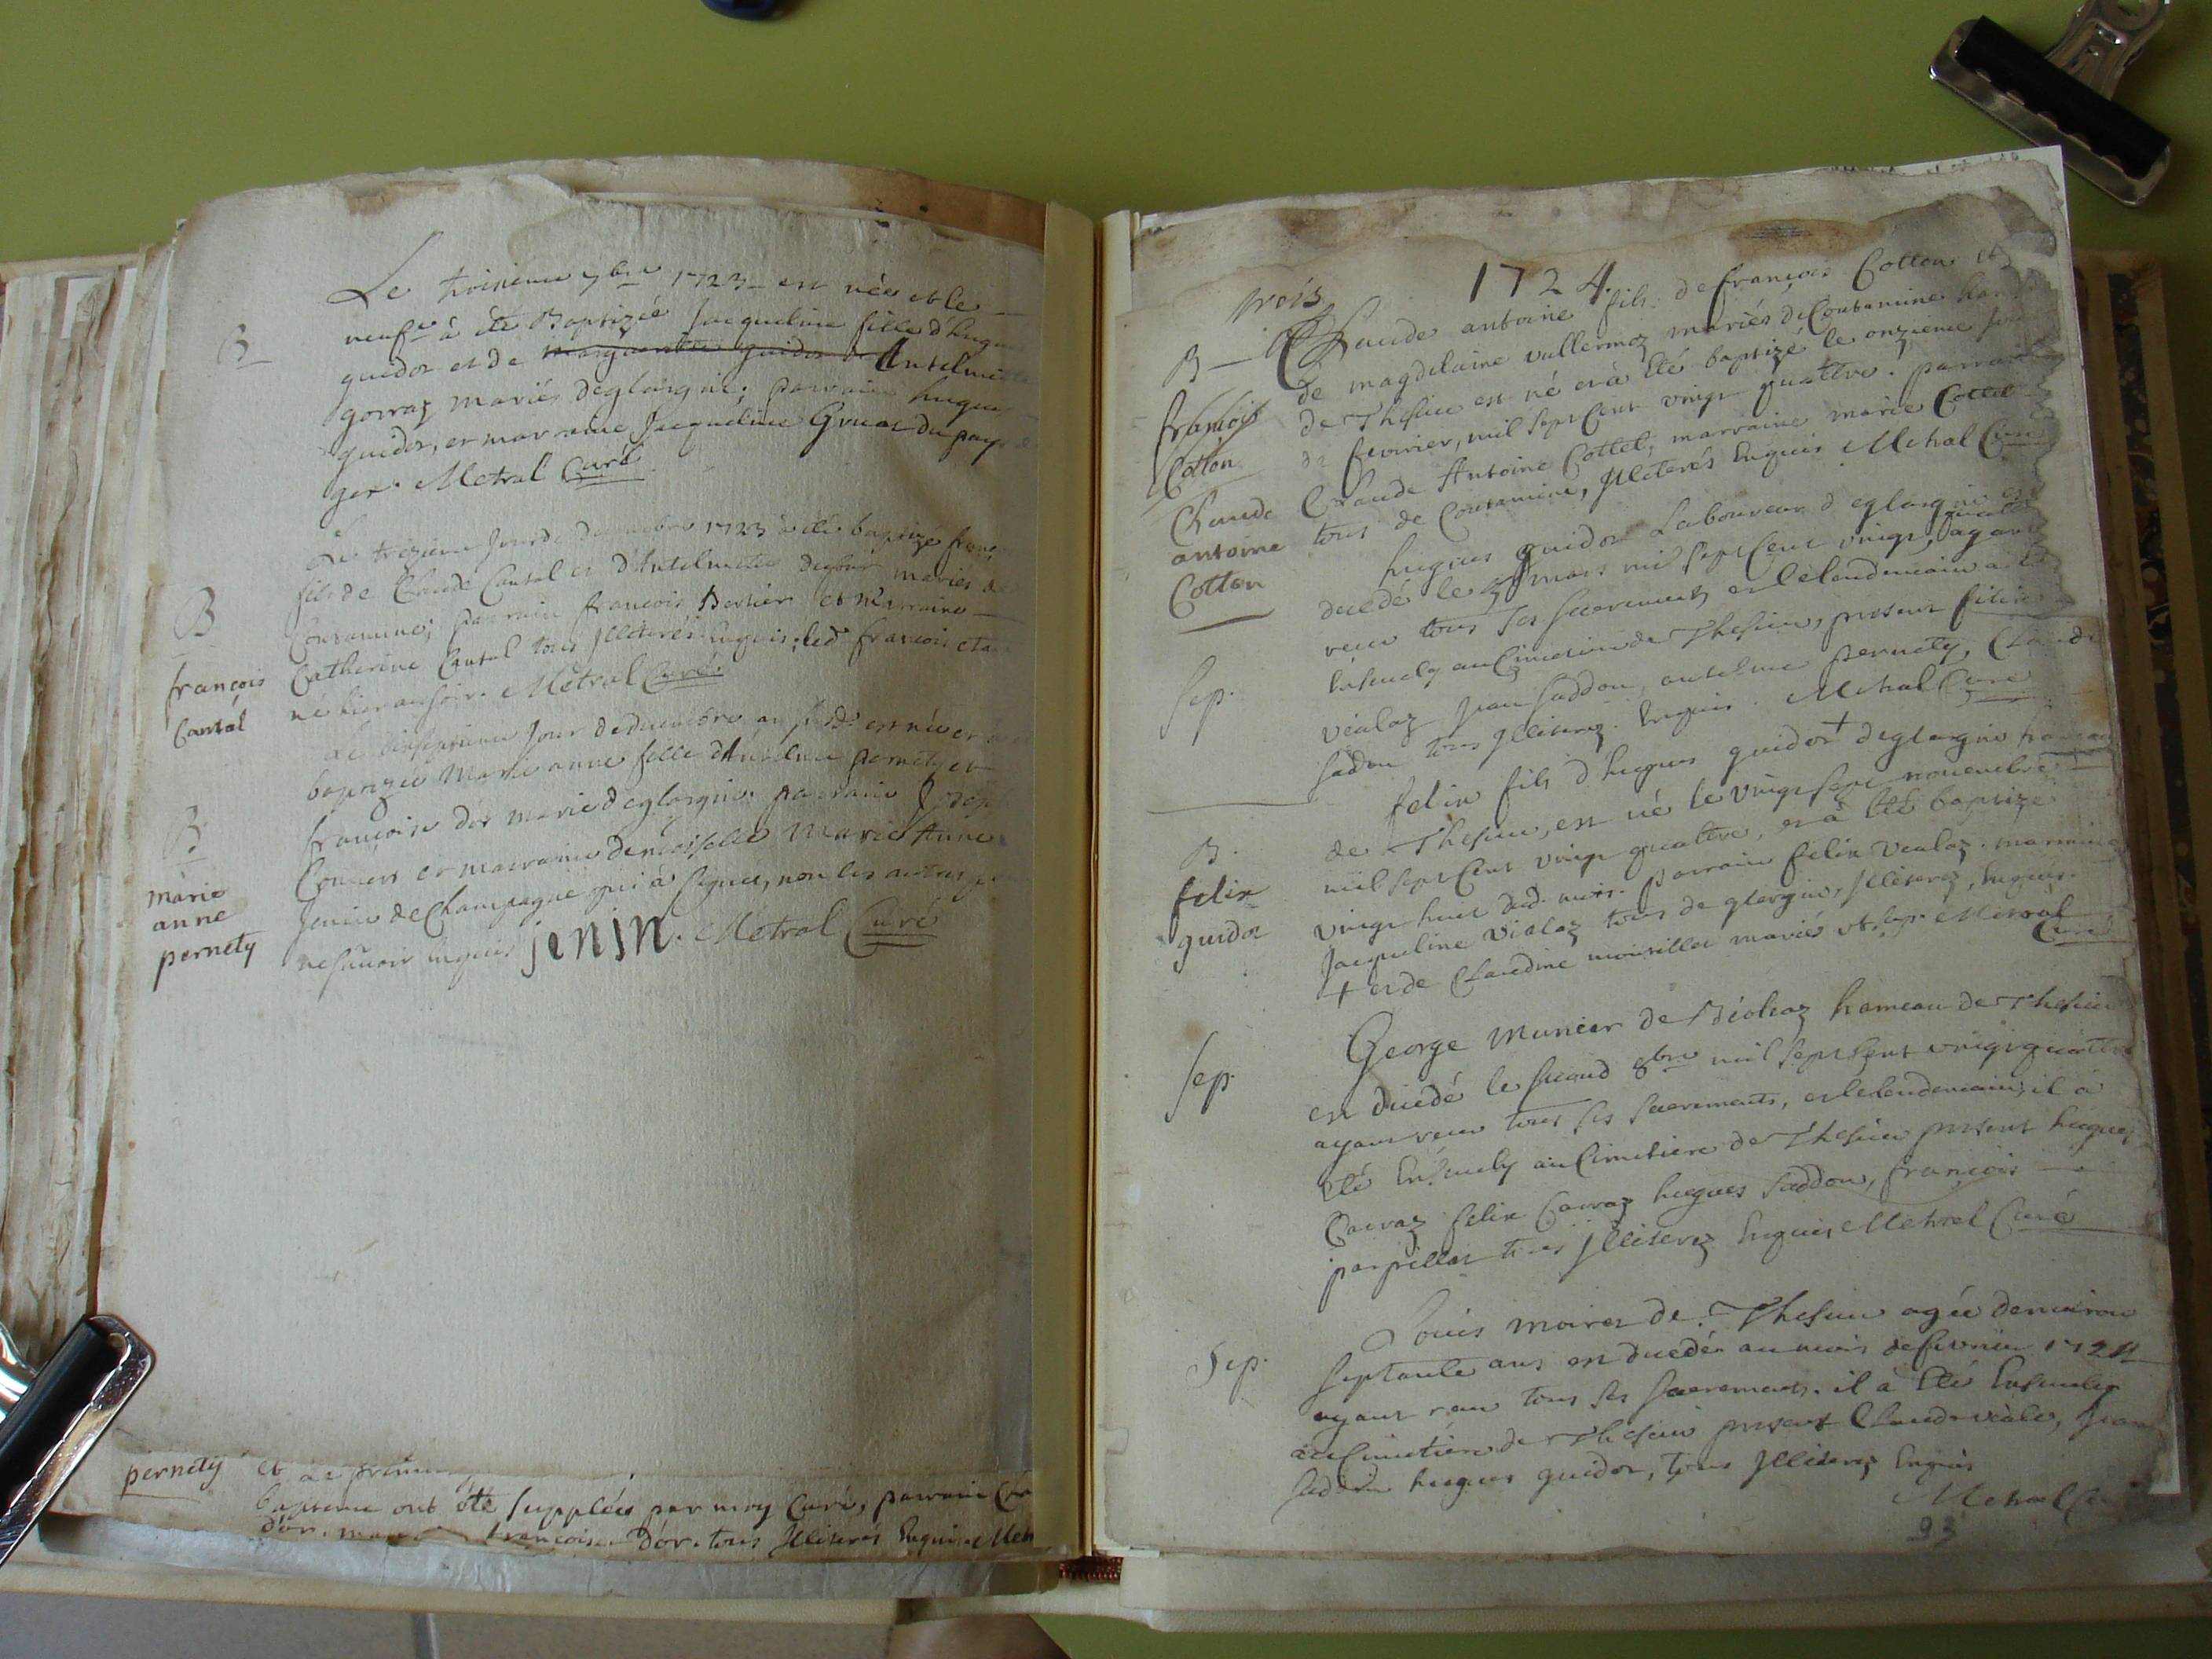 Le troisieme 7bre 1723 est née et le
B neufe à été Baptizée Jacqueline fille d'hugues
guidoz et de Antelmette
gorraz mariés deglorgnie; parrain hugues
guidoz, et marraine Jacqueline Gruat du pays de
gex. Metral Curé
Le trezieme Jour de Decembre 1723 à été baptizé franç
B fils de Claude Cantal et d'Antelmette mariés de
Contamine; parrain françois Berlier et Marraine
françois Catherine Cantal tous Jlleterés Enquis; led. francois etant
Cantal né hier au soir. Metral Curé.
Le dixseptieme Jour de decembre an susd. est née et à été
baptizée Marie anne fille d'Antelme pernety et
B françoise dor mariés deglorgnie. parrain Joseph
marie et marraine demoiselle Marie Anne
anne Jenin de Champagne qui à signée, non les autres pour
pernety ne sçavoir enquis jenin. Metral Curé
pernety et
bapteme ont été supplées par moy Curé, parrain
dor. françoise dor. tous Jlliterés Enquis. Met
1724.
trois
B Claude antoine fils de françois Cotton et
de magdelaine vullermoz mariés de Contamine
françois de Thesieu est né et à été baptizé le onzieme
Cotton de fevrier, mil sept Cent vingt quattre. parrain
Claude Claude Antoine Cottet, marraine marie Cotte
antoine tous de Contamine, Jlleterés Enquis Metral Curé
Cotton hugues guidoz Laboureur d'eglorgnie est
decedé le mars mil sept Cent vingt quatt ayant
receu tous ses sacrements et le lendemain a été
Sep. Ensevely au Cimetiere de Thesieu, present felix
vialaz Jean saddou, antelme pernety, Claude
sadou tous Jlliterez. Enquis. Metral Curé
felix fils d'hugues guidoz + deglorgnie hameau
B. de Thesieu, est né le vingt sept novembre
felix mil sept Cent vingt quattre, et à été baptizé
guidoz vingt huit dud. mois. parrain felix vialaz. marraine
Jacqueline vialaz tous de glorgnie, Jlliterez, Enquis.
+ et de Claudine mariés ut sup. Metral
Curé
George Munier de Béolaz hameau de Thesieu
Sep. est decedé le second 8bre mil sept Cent vingt quattre
ayant receu tous ses sacrements, et le lendemain, il à
été Ensevely au Cimetiere de Thesieu present hugues
Gorraz felix Gorraz hugues saddou, françois
parpillat tous Jlliterez Enquis, Metral Curé
Louis moiret de Thesieu agée denviron
Sep. septante ans est decedé au mois de fevrier 1724
ayant receu tous ses sacrements. il a été Ensevely
au Cimetiere de Thesieu present Claude vialaz, Jean
saddou hugues guidoz, tous Jlliterez Enquis
Metral Curé
93